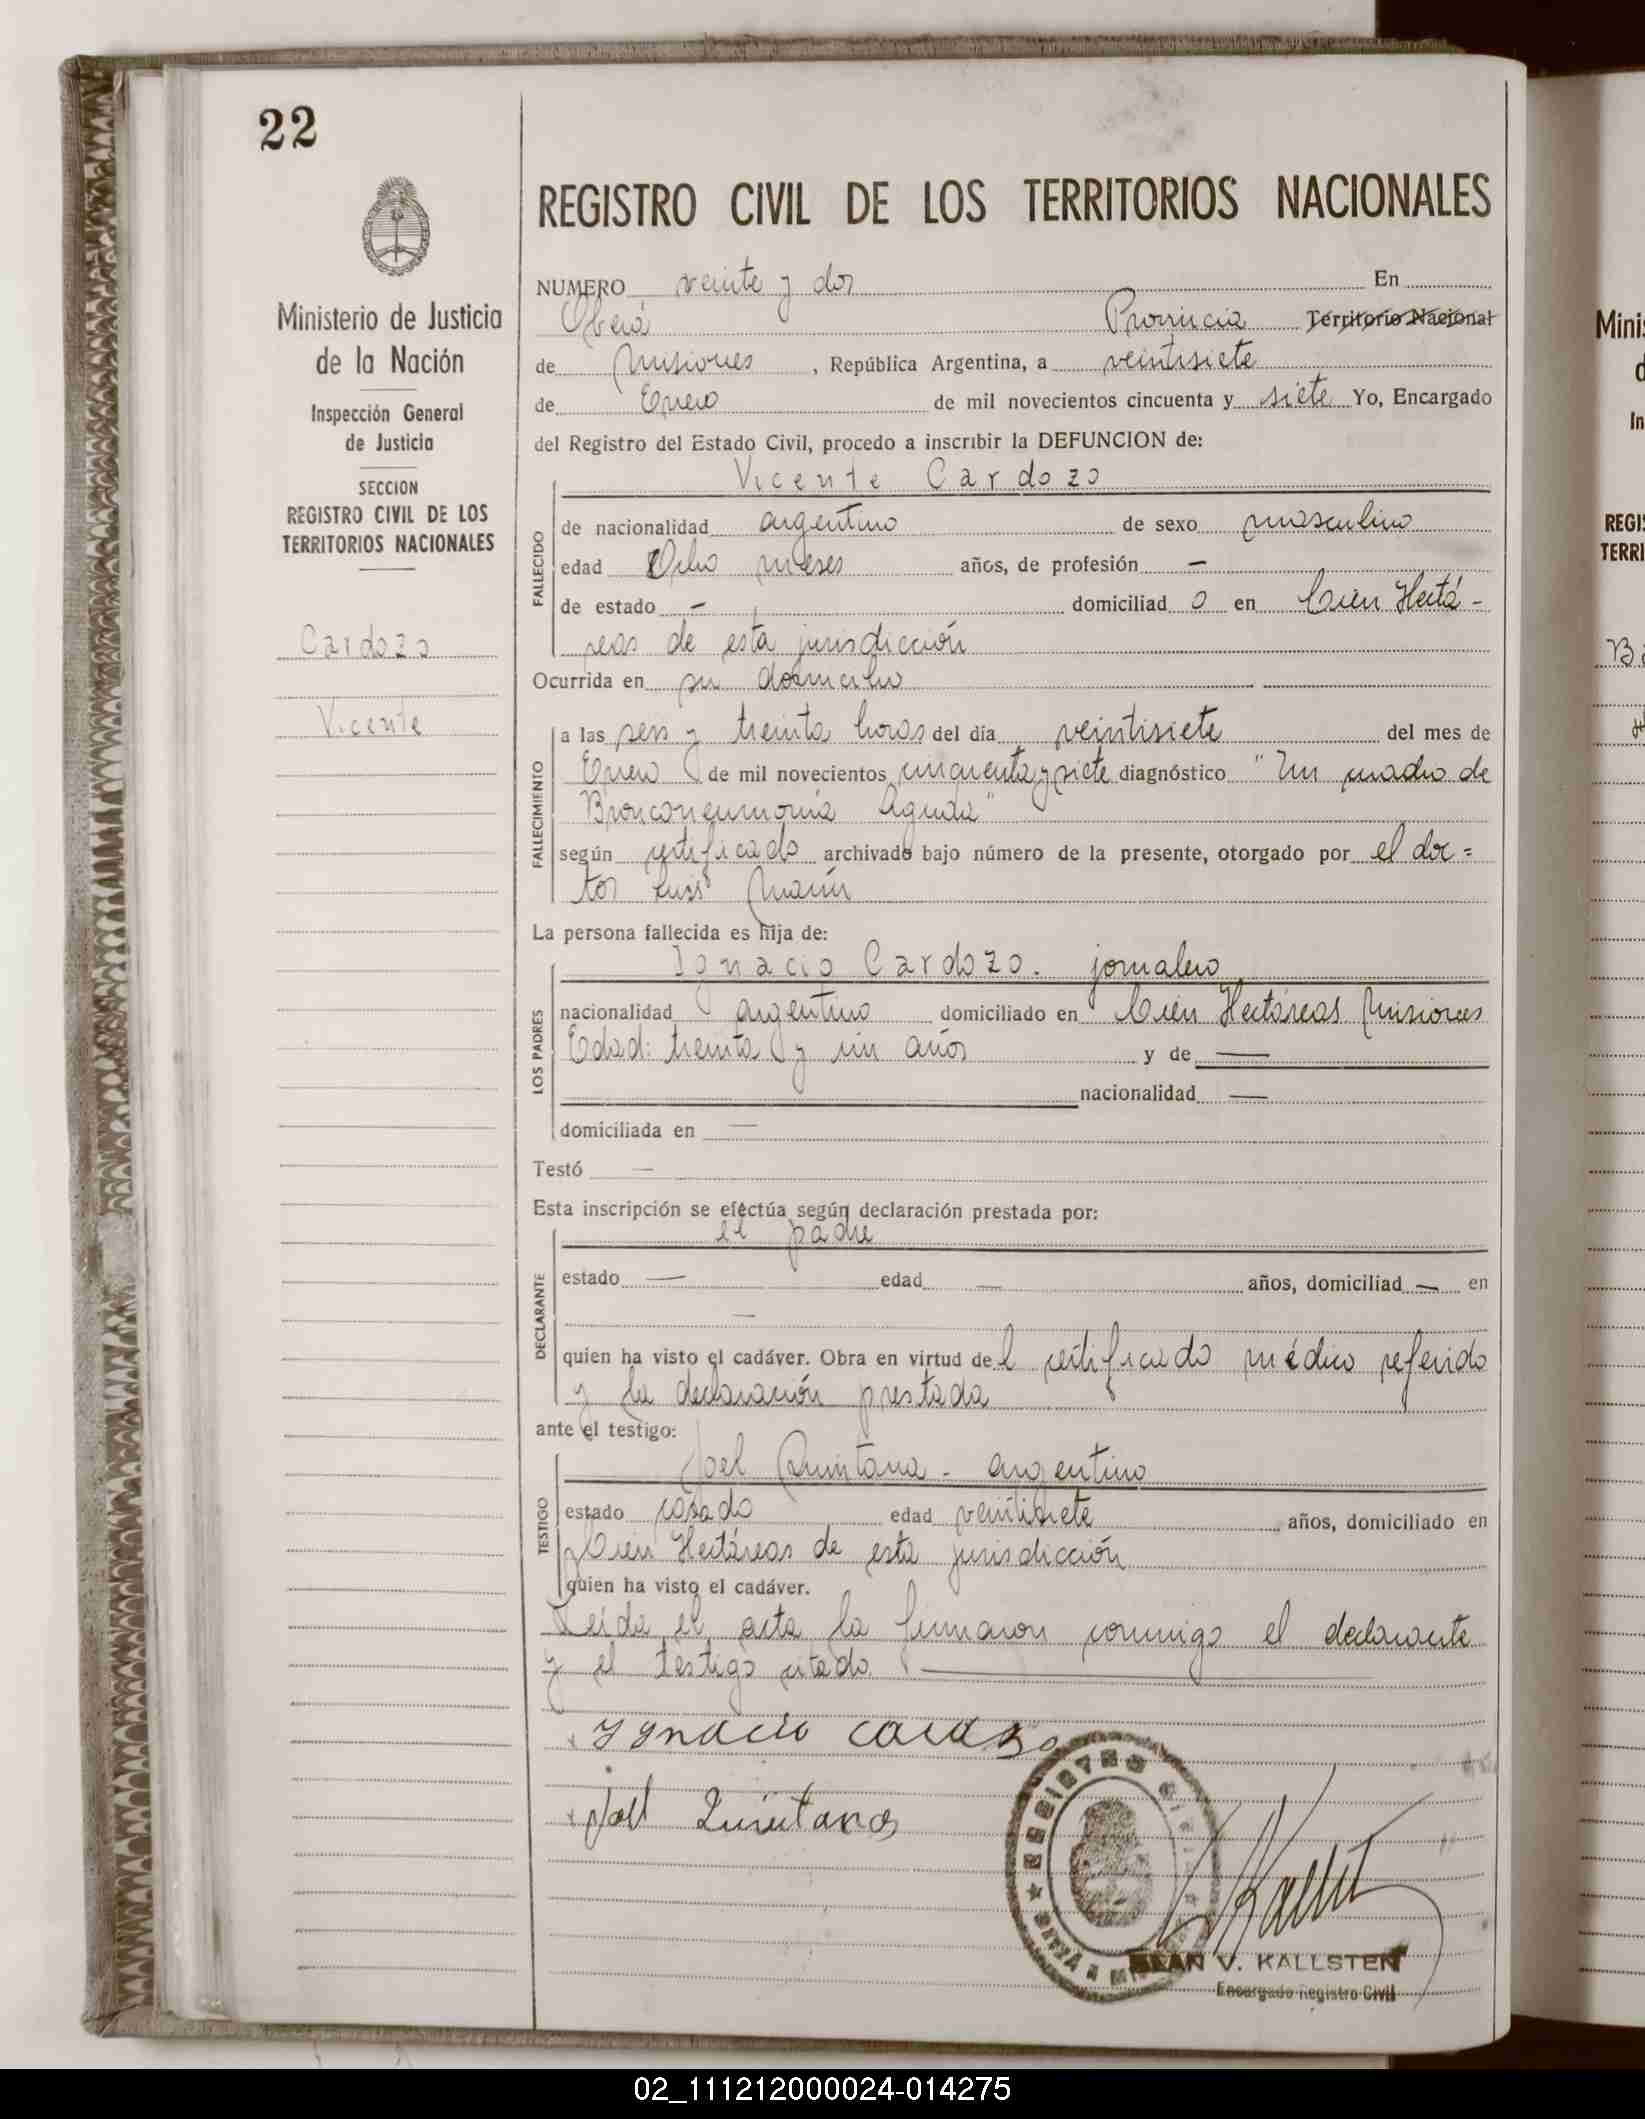 22
Ministerio de Justicia
de la Nación
Inspección General
de Justicia
SECCION
REGISTRO CIVIL DE LOS
TERRITORIOS NACIONALES
Cardozo
Vicente
REGISTRO CIVIL DE LOS TERRITORIOS NACIONALES
NUMERO veinte y dos En
Oberá Provincia Territorio Nacional
de Misiones, República Argentina, a veintisiete
de Enero de mil novecientos cincuenta y siete Yo, Encargado
del Registro del Estado Civil, procedo a inscribir la DEFUNCION de:
Vicente Cardozo
FALLECIDO
de nacionalidad argentino de sexo masculino
edad Ocho meses años, de profesión —
de estado — domiciliad o en Cien Hectá-
reas de esta jurisdicción
Ocurrida en su domicilio
FALLECIMIENTO
a las seis y treinta horas del día veintisiete del mes de
Enero de mil novecientos cincuenta y siete diagnóstico "Un cuadro de
Bronconeumonía Aguda"
según certificado archivado bajo número de la presente, otorgado por el doc=
tor Luis Marín
La persona fallecida es hija de:
LOS PADRES
Ignacio Cardozo. jornalero
nacionalidad argentino domiciliado en Cien Hectáreas Misiones
Edad: treinta y un años y de —
nacionalidad —
domiciliada en —
Testó —
Esta inscripción se efectúa según declaración prestada por:
DECLARANTE
el padre
estado — edad — años, domiciliad — en
—
quien ha visto el cadáver. Obra en virtud del certificado médico referido
y la declaración prestada
ante el testigo:
TESTIGO
Joel Quintana - argentino
estado casado edad veintisiete años, domiciliado en
Cien Hectáreas de esta jurisdicción
quien ha visto el cadáver.
Leída el acta la firmaron conmigo el declarante
y el testigo citado. —
Ygnacio Cardozo
Joel Quintana
REGISTRO CIVIL
V. KALLSTEN
Encargado Registro Civil
Minis
d
In
REGIS
TERRI
02_111212000024-014275